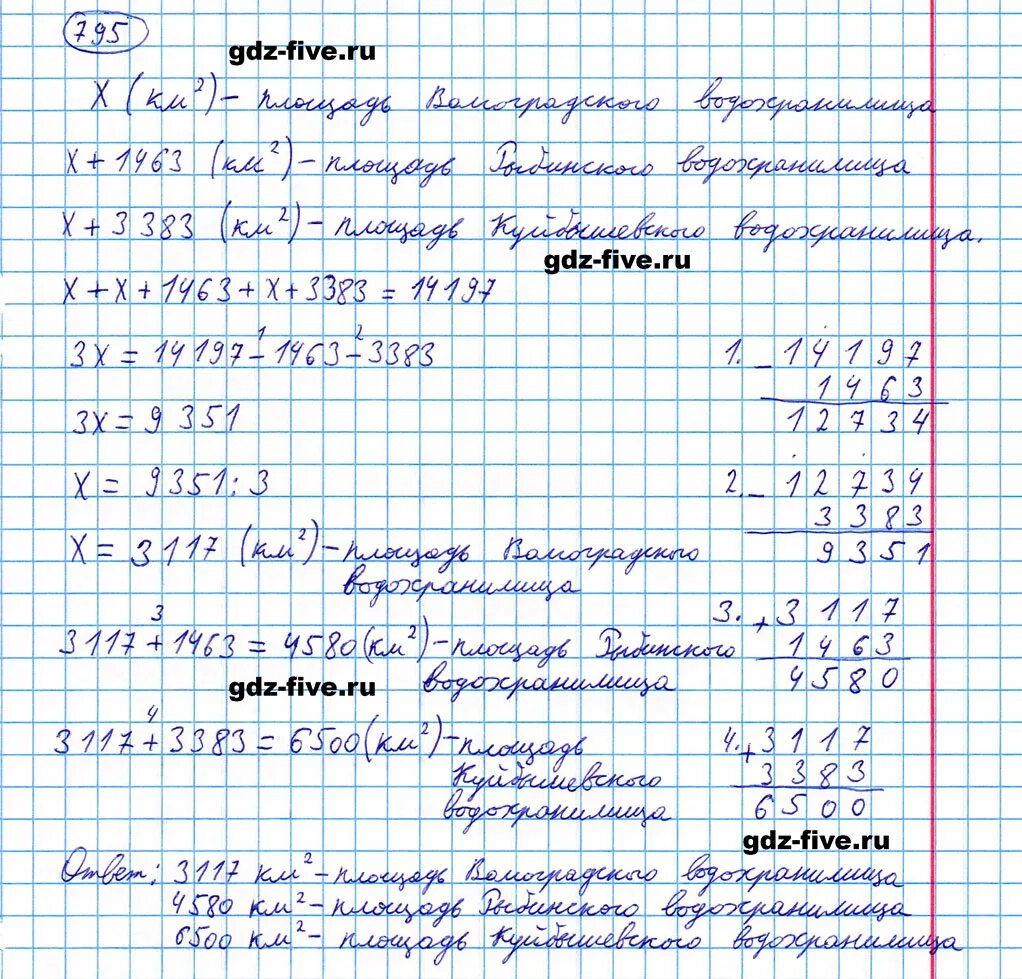 795
gdz-five.ru
x (км²) – площадь Волгоградского водохранилища
x + 1463 (км²) – площадь Рыбинского водохранилища
x + 3383 (км²) – площадь Куйбышевского водохранилища.
gdz-five.ru
x + x + 1463 + x + 3383 = 14197
3x = 14197 –¹ 1463 –² 3383
1. – 14197
1463
12734
3x = 9351
x = 9351 : 3
2. – 12734
3383
9351
x = 3117 (км²) – площадь Волгоградского
водохранилища
3117 +³ 1463 = 4580 (км²) – площадь Рыбинского
водохранилища
3. + 3117
1463
4580
gdz-five.ru
3117 +⁴ 3383 = 6500 (км²) – площадь
Куйбышевского
водохранилища
4. + 3117
3383
6500
gdz-five.ru
Ответ: 3117 км² – площадь Волгоградского водохранилища
4580 км² – площадь Рыбинского водохранилища
6500 км² – площадь Куйбышевского водохранилища